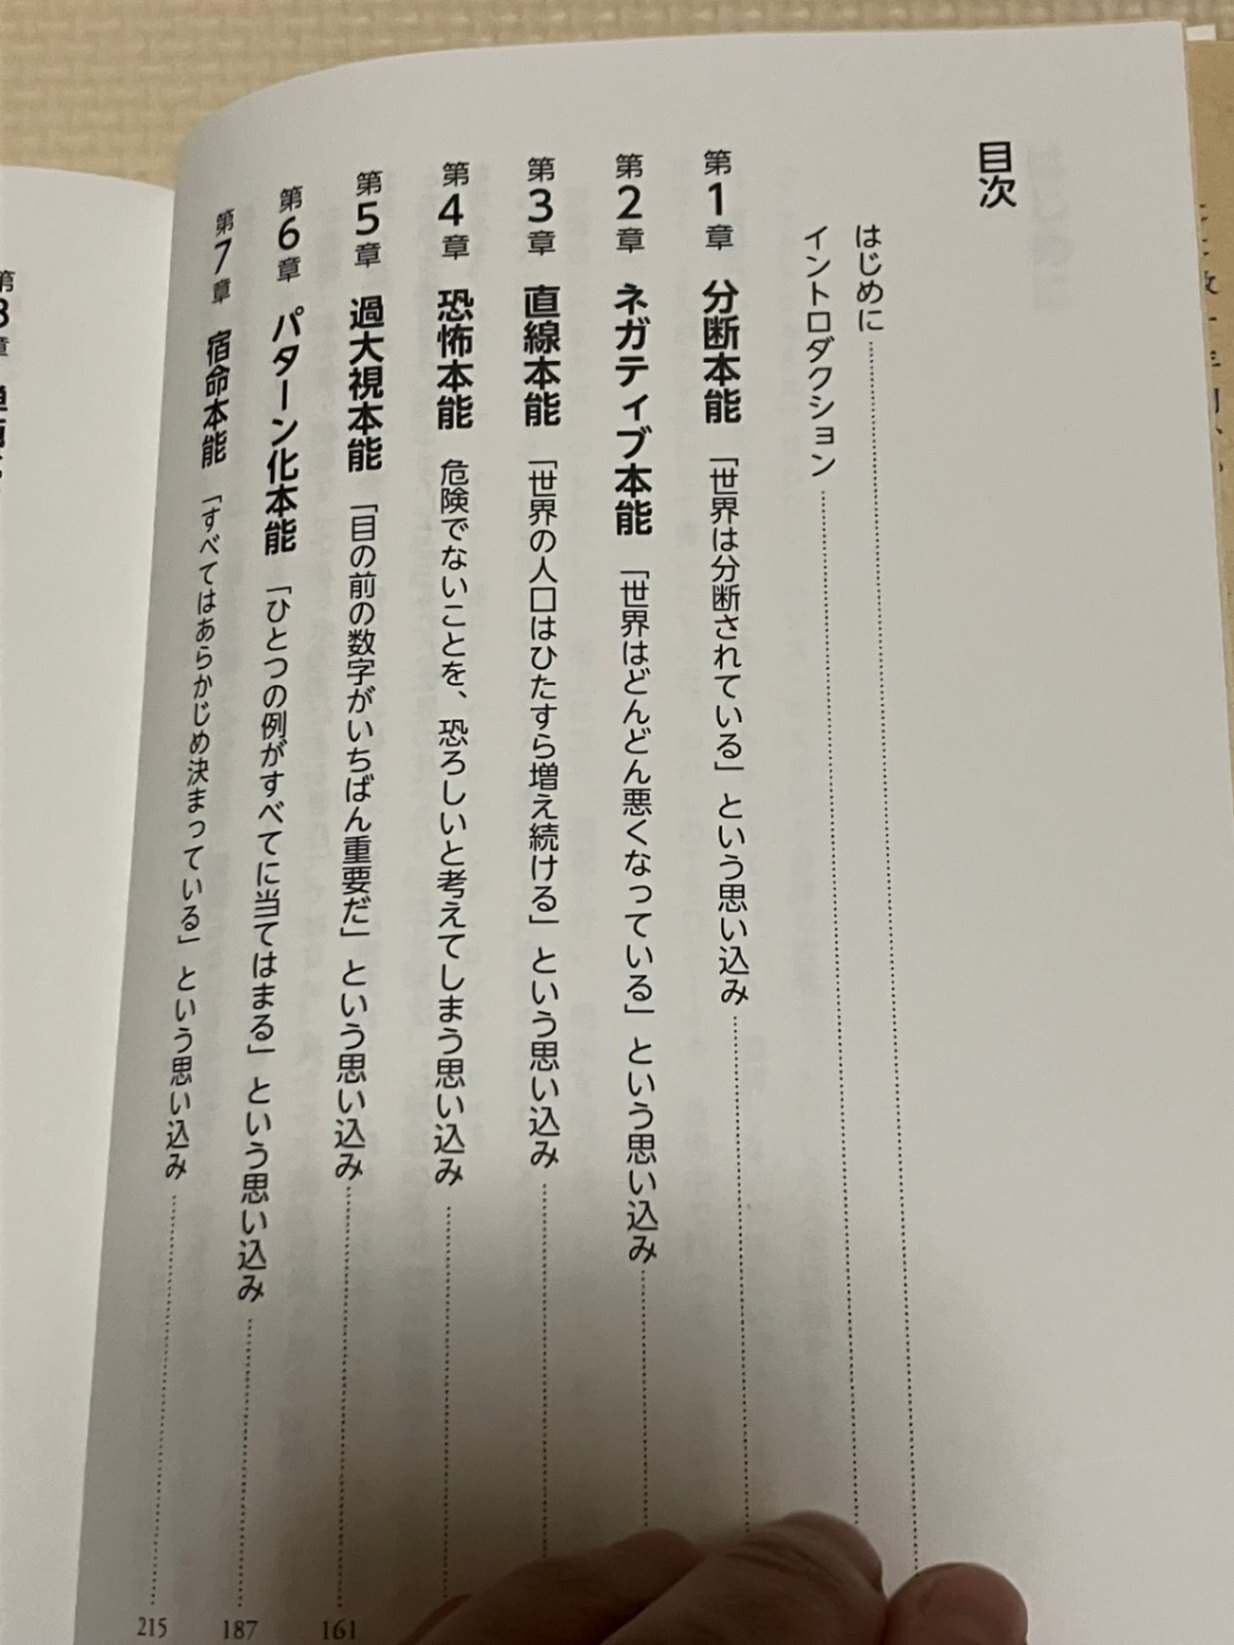 目次
はじめに
イントロダクション
第1章 分断本能 「世界は分断されている」という思い込み
第2章 ネガティブ本能 「世界はどんどん悪くなっている」という思い込み
第3章 直線本能 「世界の人口はひたすら増え続ける」という思い込み
第4章 恐怖本能 危険でないことを、恐ろしいと考えてしまう思い込み
第5章 過大視本能 「目の前の数字がいちばん重要だ」という思い込み 161
第6章 パターン化本能 「ひとつの例がすべてに当てはまる」という思い込み 187
第7章 宿命本能 「すべてはあらかじめ決まっている」という思い込み 215
第8章